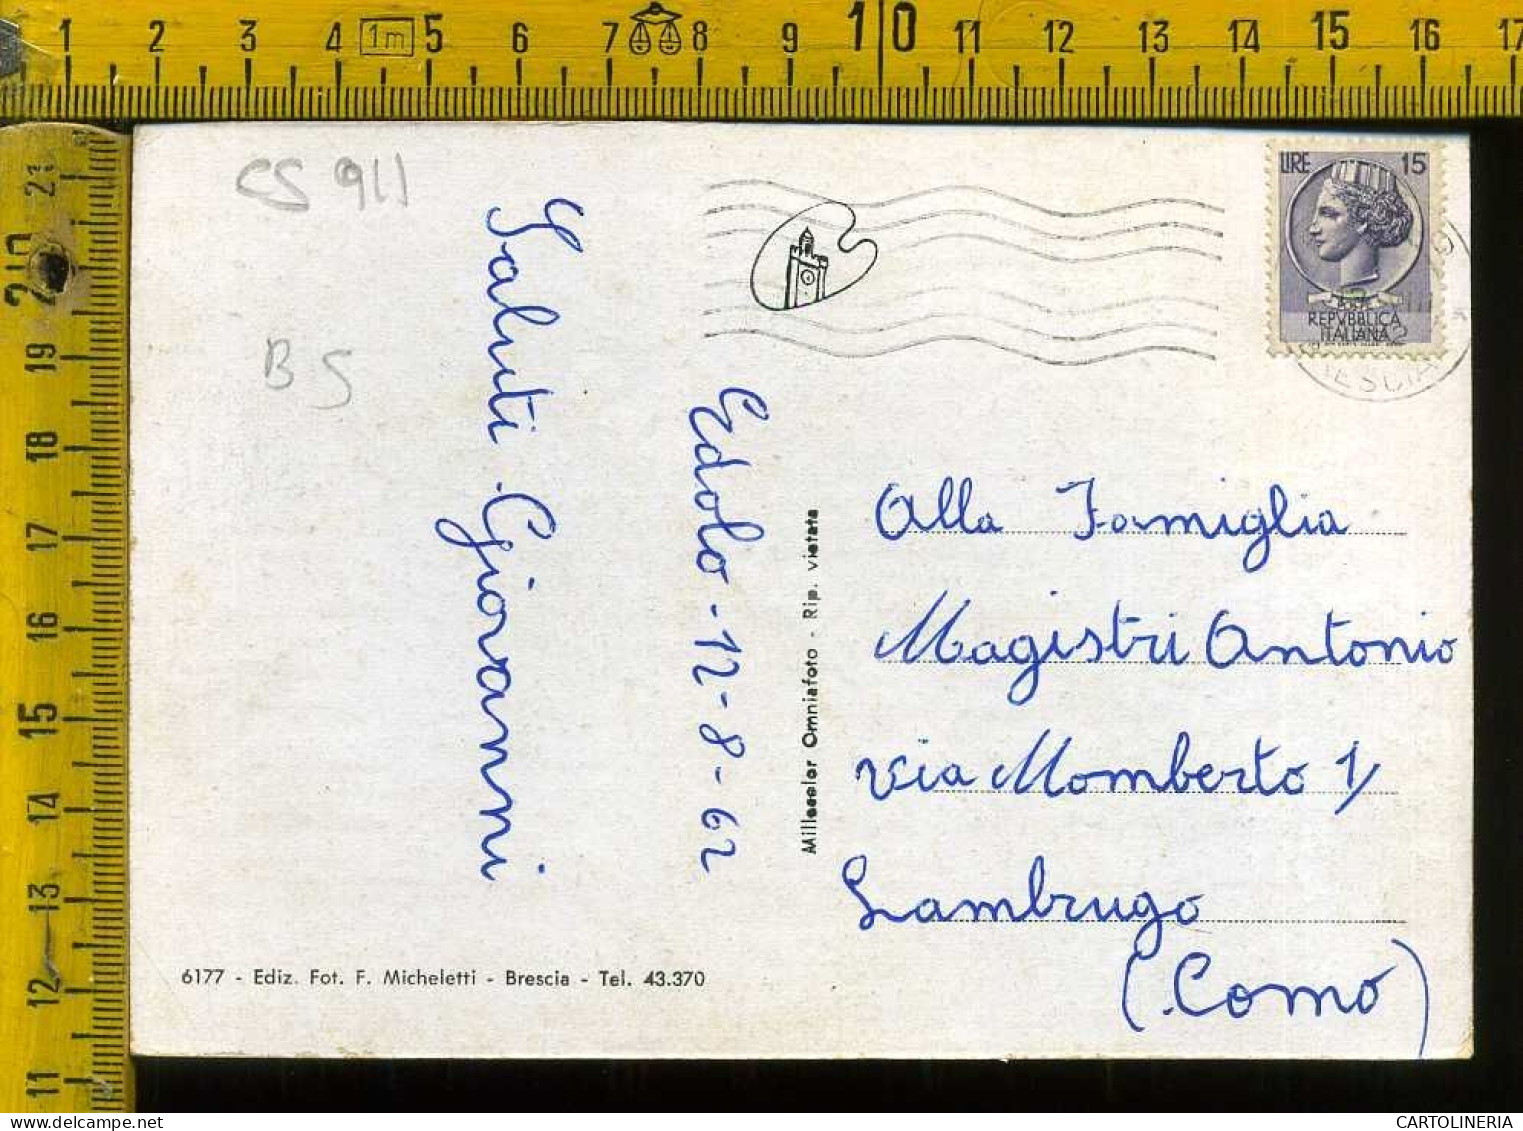 1 2 3 4 1m 5 6 7 8 9 10 11 12 13 14 15 16 17
21
20
19
18
17
16
15
14
13
12
11
CS 911
BS
LIRE 15
REPVBBLICA
ITALIANA
BRESCIA
Saluti Giovanni
Edolo - 12-8-62
Millecolor Omniafoto - Rip. vietata
Alla Famiglia
Magistri Antonio
via Momberto 1/
Lambrugo
(Como)
6177 - Ediz. Fot. F. Micheletti - Brescia - Tel. 43.370
CARTOLINERIA